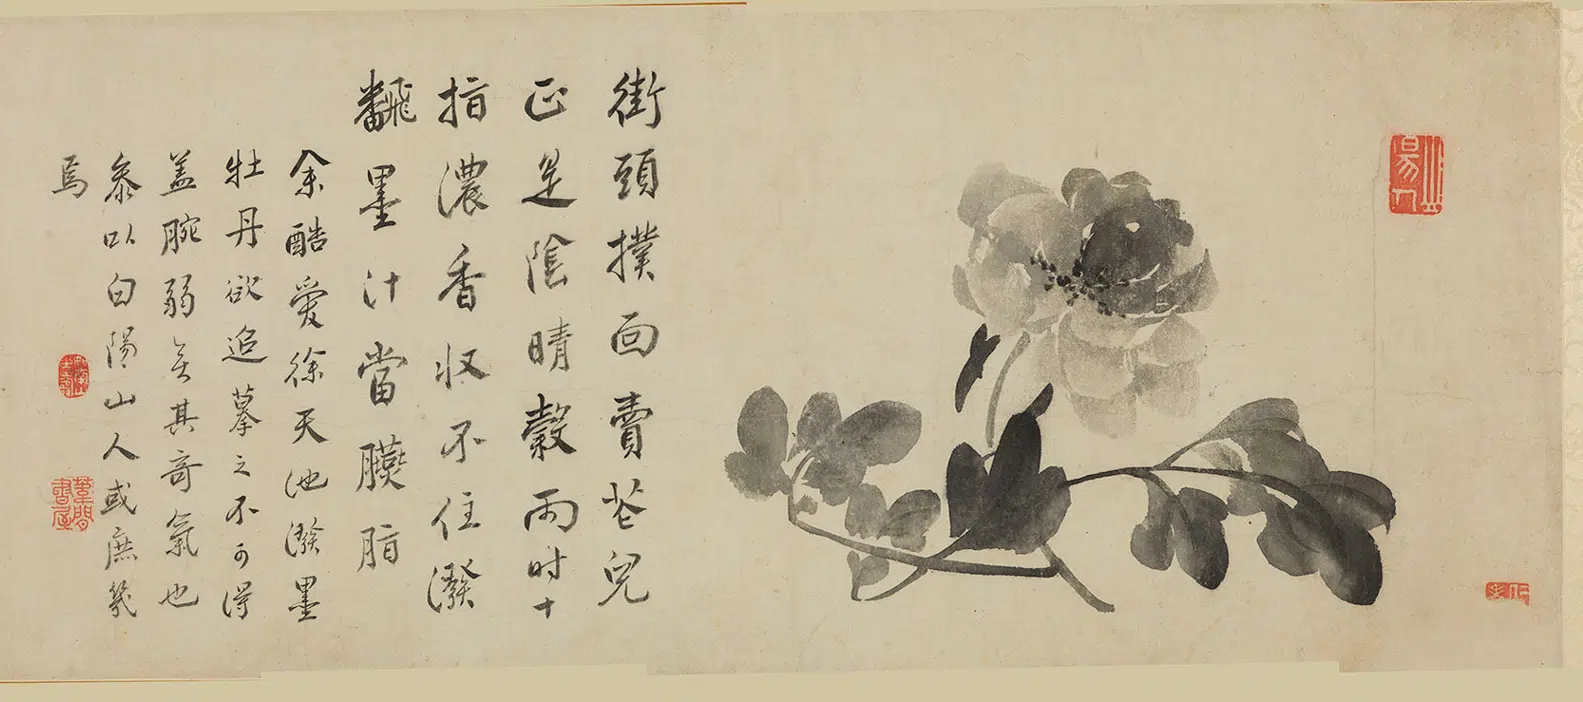 街頭撲面賣花兒
正是陰晴穀雨时十
指濃香收不住潑
飜墨汁當臙脂
余酷愛徐天池潑墨
牡丹欲追摹之不可得
盖腕弱乏其奇氣也
叅以白陽山人或庶幾
焉
葦間書屋